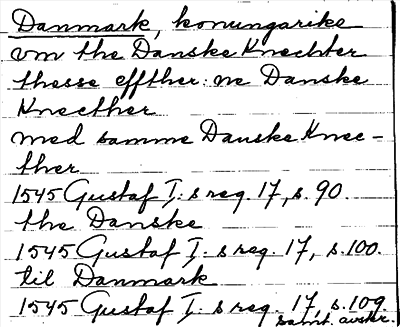 Danmark, konungarike
vm the Danske Knechter
thesse effther: ne Danske
Knecther
med samme Danske Knec-
ther
1545 Gustaf I: s reg. 17, s. 90.
the Danske
1545 Gustaf I: s reg. 17, s. 100.
til Danmark
1545 Gustaf I: s reg. 17, s. 109.
samt. avskr.